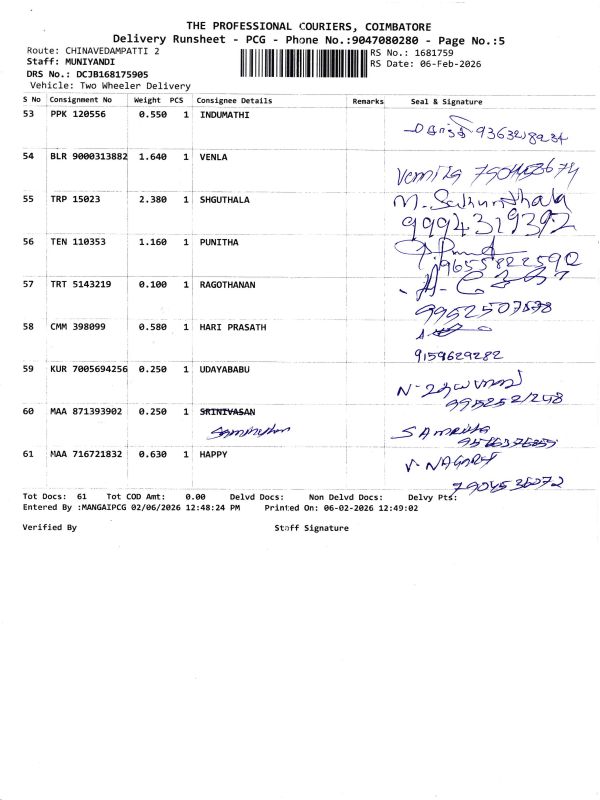 THE PROFESSIONAL COURIERS, COIMBATORE
Delivery Runsheet - PCG - Phone No.:9047080280 - Page No.:5
Route: CHINAVEDAMPATTI 2
RS No.: 1681759
Staff: MUNIYANDI
RS Date: 06-Feb-2026
DRS No.: DCJB168175905
Vehicle: Two Wheeler Delivery
S No Consignment No Weight PCS Consignee Details Remarks Seal & Signature
53 PPK 120556 0.550 1 INDUMATHI
54 BLR 9000313882 1.640 1 VENLA
55 TRP 15023 2.380 1 SHGUTHALA
M. Sakunthala
9994319392
56 TEN 110353 1.160 1 PUNITHA
9655822590
57 TRT 5143219 0.100 1 RAGOTHANAN
58 CMM 398099 0.580 1 HARI PRASATH
9159629282
59 KUR 7005694256 0.250 1 UDAYABABU
60 MAA 871393902 0.250 1 SRINIVASAN
61 MAA 716721832 0.630 1 HAPPY
7904536072
Tot Docs: 61 Tot COD Amt: 0.00 Delvd Docs: Non Delvd Docs: Delvy Pts:
Entered By :MANGAIPCG 02/06/2026 12:48:24 PM Printed On: 06-02-2026 12:49:02
Verified By Staff Signature